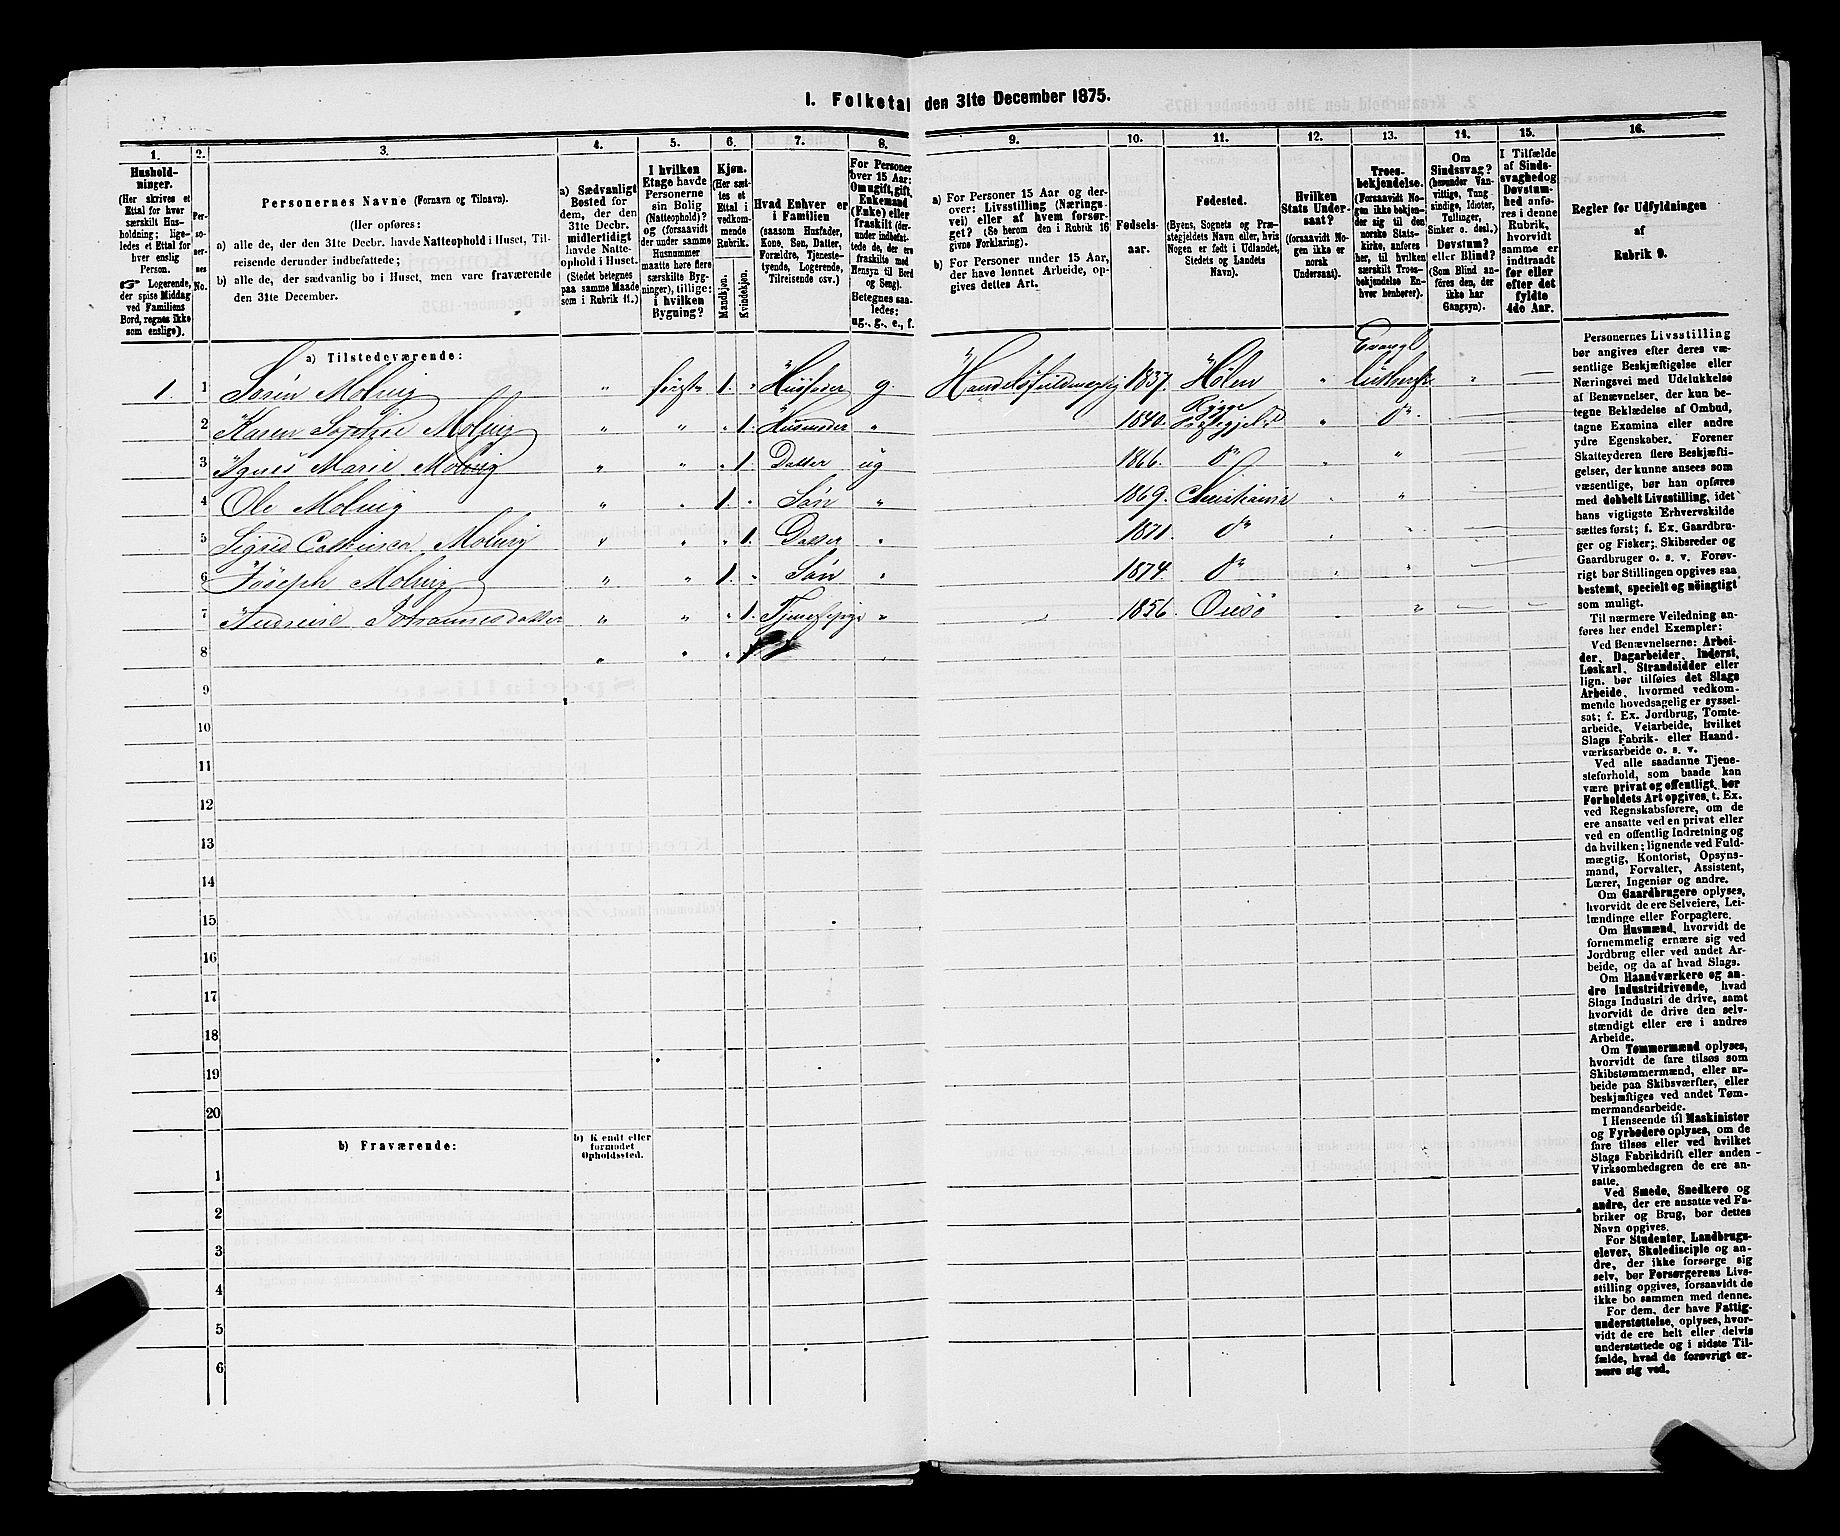 1. Folketal den 31te December 1875.
1. 2. 3. 4. 5. 6. 7. 8. 9. 10. 11. 12. 13. 14. 15. 16.
Hushold-
ninger.
(Her skrives et
Ettal for hver
særskilt Hus-
holdning; lige-
ledes et Ettal for
hver enslig
Person.
☞ Logerende,
der spise Middag
ved Familiens
Bord, regnes ikke
som enslige).
Per-
so-
ner-
nes
No.
Personernes Navne (Fornavn og Tilnavn).
(Her opføres:
a) alle de, der den 31te Decbr. havde Natteophold i Huset, Til-
reisende derunder indbefattede;
b) alle de, der sædvanlig bo i Huset, men vare fraværende
den 31te December.
a) Sædvanligt
Bosted for
dem, der den
31te Decbr.
midlertidigt
havde Natte-
ophold i Huset.
(Stedet betegnes
paa samme Maade
som i Rubrik 11.)
I hvilken
Etage havde
Personerne
sin Bolig
(Natteophold)?
og (forsaavidt
der under samme
Husnummer
maatte høre flere
særskilte Byg-
ninger), tillige:
i hvilken
Bygning?
Kjøn.
(Her sæt-
tes et
Ettal i
vedkom-
mende
Rubrik.
Mandkjøn.
Kvindekjøn.
Hvad Enhver er
i Familien
(saasom Husfader,
Kone, Søn, Datter,
Forældre, Tjeneste-
tyende, Logerende,
Tilreisende osv.)
For Personer
over 15 Aar:
Om ugift, gift,
Enkemand
(Enke) eller
fraskilt (der-
under indbefat-
tede de, der ere
fraskilte med
Hensyn til Bord
og Seng).
Betegnes saa-
ledes:
ug., g., e., f.
a) For Personer 15 Aar og der-
over: Livsstilling (Nærings-
vei) eller af hvem forsør-
get? (Se herom den i Rubrik 16
givne Forklaring).
b) For Personer under 15 Aar,
der have lønnet Arbeide, op-
gives dettes Art.
Fødsels-
aar.
Fødested.
(Byens, Sognets og Præ-
stegjeldets Navn eller, hvis
Nogen er født i Udlandet,
Stedets og Landets
Navn).
Hvilken
Stats Under-
saat?
(forsaavidt No-
gen ikke er
norsk
Undersaat).
Troes-
bekjendelse.
(Forsaavidt No-
gen ikke bekjen-
der sig til den
norske Stats-
kirke, anføres
her, til hvilken
særskilt Troes-
bekjendelse En-
hver henhører).
Om
Sindssvag?
(herunder Van-
vittige, Tung-
sindige, Idioter,
Tullinger,
Sinker o. desl.)
Døvstum?
eller Blind?
(Som Blind an-
føres den, der
ikke har
Gangsyn).
I Tilfælde
af Sinds-
svaghed og
Døvstum-
hed anfø-
res i denne
Rubrik,
hvorvidt
samme er
indtraadt
før eller
efter det
fyldte
4de Aar.
Regler for Udfyldningen
af
Rubrik 9.
a) Tilstedeværende:
Evangl
1. 1 Sørin Molvig " første 1. " Husfader g. Handelsfuldmægtig 1837. Hølen " luthersk " —
2 Karen Sophie Molvig " " " 1. Husmoder " 1840. Rygge Præstegjeld " do
3 Agnes Marie Molvig " " " 1. Datter ug 1866. do " "
4 Ole Molvig " " 1. " Søn " 1869. Christiania " "
5 Sigrid Molvig " " " 1. Datter " 1871. do " "
6 Joseph Molvig " " 1. " Søn " 1874. do " "
7 Johannesdatter " " " 1. Tjenestepige " 1856. " — —
8
9
10
11
12
13
14
15
16
17
18
19
20
b) Fraværende:
b) Kjendt eller
formodet
Opholdssted.
1
2
3
4
5
6
Personernes Livsstilling
bør angives efter deres væ-
sentlige Beskjæftigelse eller
Næringsvei med Udelukkelse
af Benævnelser, der kun be-
tegne Beklædelse af Ombud,
tagne Examina eller andre
ydre Egenskaber. Forener
Skatteyderen flere Beskjæfti-
gelser, der kunne ansees som
væsentlige, bør han opføres
med dobbelt Livsstilling, idet
hans vigtigste Erhvervskilde
sættes først; f. Ex. Gaardbru-
ger og Fisker; Skibsreder og
Gaardbruger o. s. v. Forøv-
rigt bør Stillingen opgives saa
bestemt, specielt og nøiagtigt
som muligt.
Til nærmere Veiledning an-
føres her endel Exempler:
Ved Benævnelserne: Arbei-
der, Dagarbeider, Inderst,
Løskarl, Strandsidder eller
lign. bør tilføies det Slags
Arbeide, hvormed vedkom-
mende hovedsagelig er syssel-
sat; f. Ex. Jordbrug, Tomte-
arbeide, Veiarbeide, hvilket
Slags Fabrik- eller Haand-
værksarbeide o. s. v.
Ved alle saadanne Tjene-
steforhold, som baade kan
være privat og offentligt, bør
Forholdets Art opgives, t. Ex.
ved Regnskabsførere, om de
ere ansatte ved en privat eller
ved en offentlig Indretning og
da hvilken; lignende ved Fuld-
mægtig, Kontorist, Opsyns-
mand, Forvalter, Assistent,
Lærer, Ingeniør og andre.
Om Gaardbrugere oplyses,
hvorvidt de ere Selveiere, Lei-
lændinge eller Forpagtere.
Om Husmænd, hvorvidt de
fornemmelig ernære sig ved
Jordbrug eller ved andet Ar-
beide, og da af hvad Slags.
Om Haandværkere og an-
dre Industridrivende, hvad
Slags Industri de drive, samt
hvorvidt de drive den selv-
stændigt eller ere i andres
Arbeide.
Om Tømmermænd oplyses,
hvorvidt de fare tilsøs som
Skibstømmermænd, eller ar-
beide paa Skibsværfter, eller
beskjæftiges ved andet Tøm-
mermandsarbeide.
I Henseende til Maskinister
og Fyrbødere oplyses, om de
fare tilsøs eller ved hvilket
Slags Fabrikdrift eller anden
Virksomhedsgren de ere an-
satte.
Ved Smede, Snedkere og
andre, der ere ansatte ved Fa-
briker og Brug, bør dettes
Navn opgives.
For Studenter, Landbrugs-
elever, Skoledisciple og an-
dre, der ikke forsørge sig
selv, bør Forsørgerens Livs-
stilling opgives, forsaavidt de
ikke bo sammen med denne.
For dem, der have Fattig-
understøttelse, oplyses, hvor-
vidt de ere helt eller delvis
understøttede og i sidste Til-
fælde, hvad de forøvrigt er-
nære sig ved.